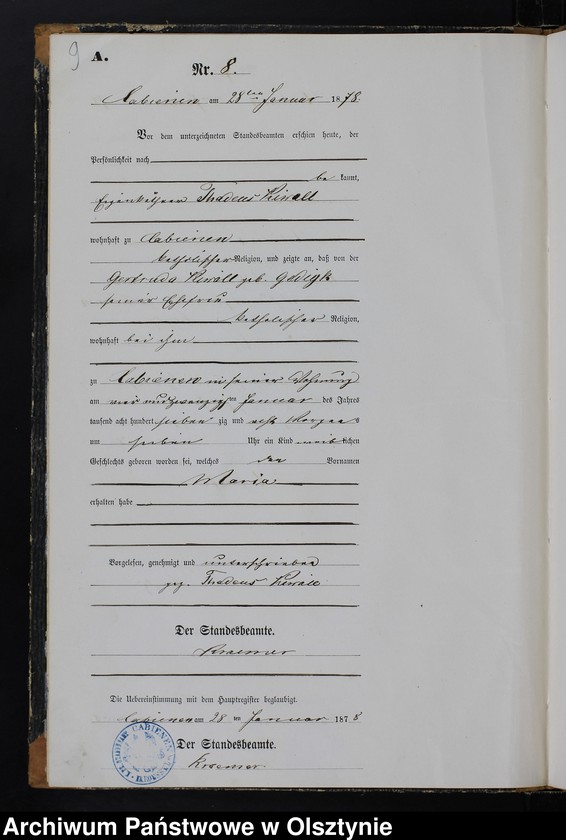 9
A.
Nr. 8.
Cabienen am 28ten Januar 1878.
Vor dem unterzeichneten Standesbeamten erschien heute, der
Persönlichkeit nach
be kannt,
Eigenkäthner Thadeus Kiwall
wohnhaft zu Cabienen
katholischer Religion, und zeigte an, daß von der
Gertruda Kiwall geb. Godigk
seiner Ehefrau
katholischer Religion,
wohnhaft bei ihm
zu Cabienen in seiner Wohnung
am vier und zwanzigsten Januar des Jahres
tausend acht hundert sieben zig und acht Morgens
um sieben Uhr ein Kind weiblichen
Geschlechts geboren worden sei, welches den Vornamen
Maria
erhalten habe
Vorgelesen, genehmigt und unterschrieben
gez. Thadeus Kiwall
Der Standesbeamte.
Kraemer
Die Uebereinstimmung mit dem Hauptregister beglaubigt.
Cabienen am 28 ten Januar 1878
Der Standesbeamte.
Kraemer.
CABIENEN
Archiwum Państwowe w Olsztynie